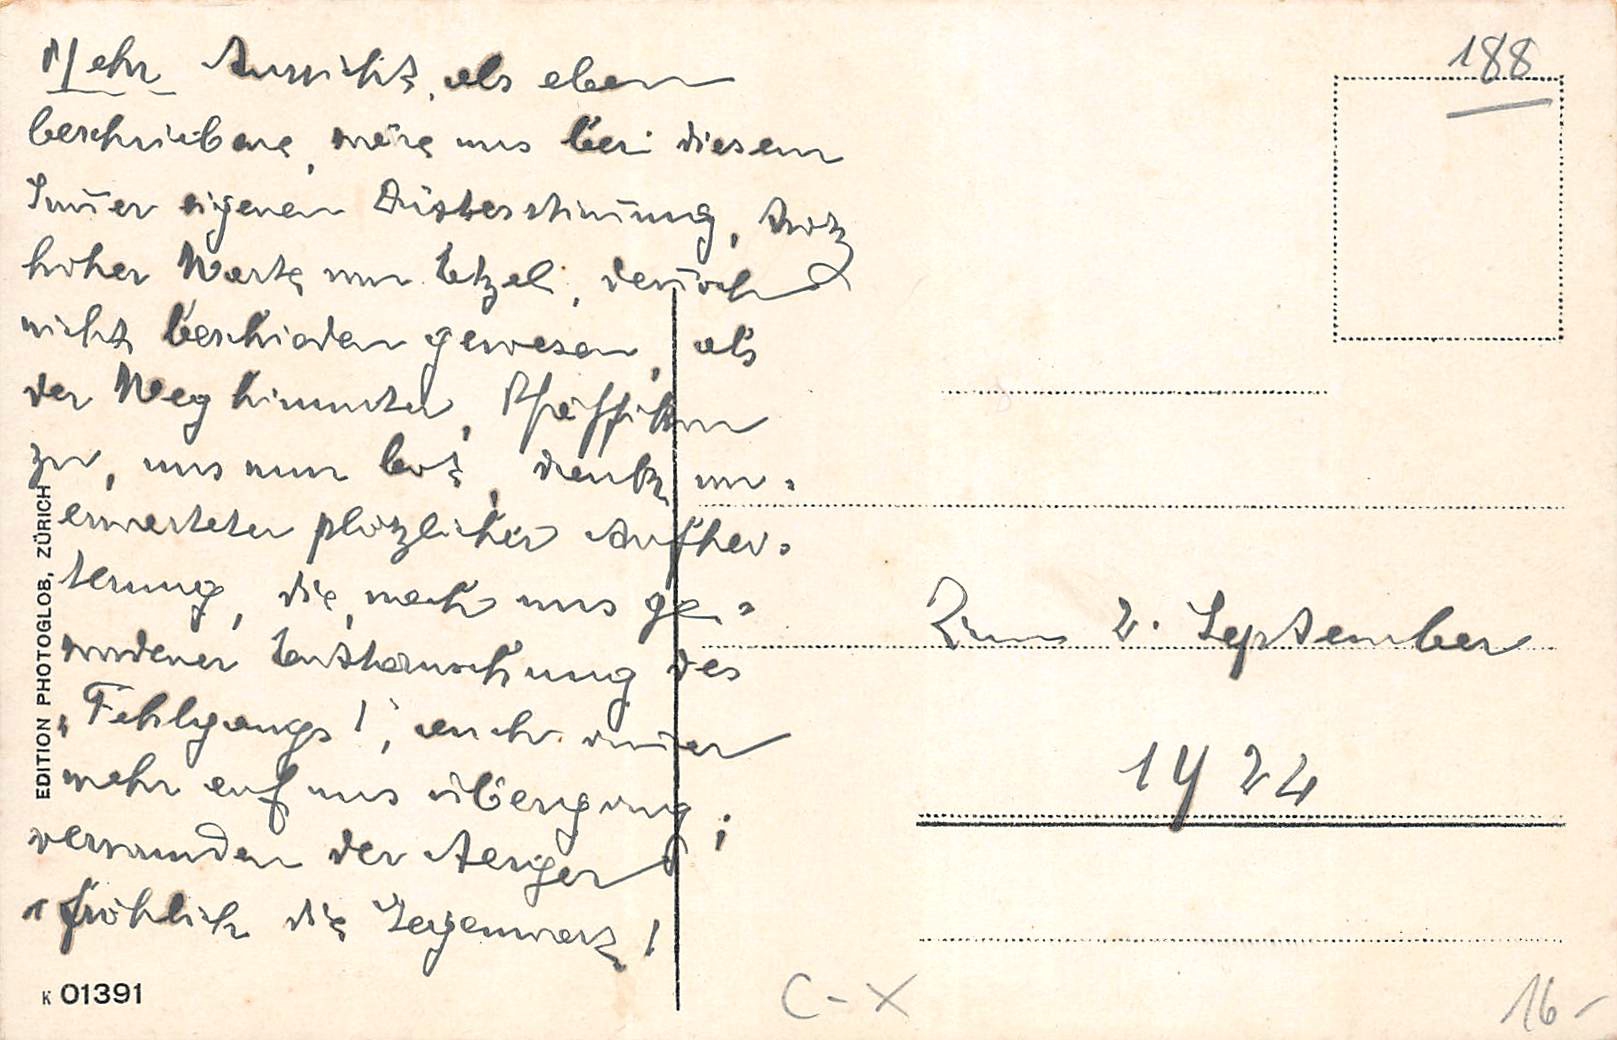 188
Mehr Aussicht, als eben
beschriebene, wäre uns bei diesem
immer eigenen Düsterstim̅ung, trotz
hoher Warte am Etzel, den̅och
nicht beschieden gewesen, als
der Weg hinunter, Pfäffikon
zu, uns nun bot, dank un-
erwarteter plötzlicher Aufhei-
terung, die, nach uns ge-
wordener Enttäuschung des
„Fehlgangs!", auch
mehr auf uns überging;
verwunden der Aerger
fröhlich die Gegenwart!
Zum 2. September
1924
EDITION PHOTOGLOB, ZÜRICH
K 01391
C-X
16-